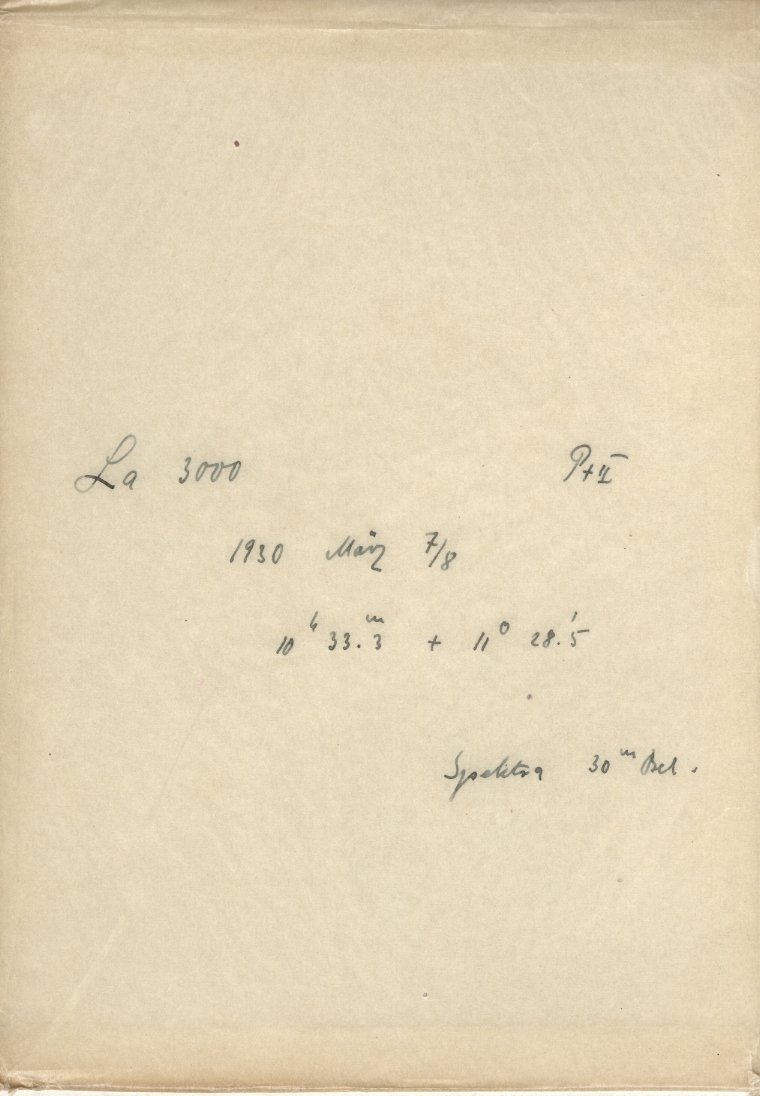 La 3000 P+II
1930 März 7/8
10ʰ 33.ᵐ3 + 11° 28.'5
Spektra 30ᵐ Bel.